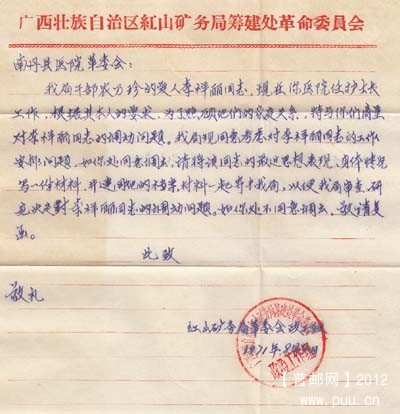 广西壮族自治区紅山矿务局筹建处革命委員会
南丹县医院革委会：
我局干部农力珍的爱人李祥丽同志，现在你医院任护士长
工作，根据其本人的要求，为了照顾他们的家庭关系，特与你们商量
对李祥丽同志的调动问题。我局现同意考虑对李祥丽同志的工作
安排问题，如你处同意调出，请将该同志的政治思想表现、身体情况
写一份材料，并连同她的档案材料一起寄于我局，以便我局审查、研
究决定对李祥丽同志的调动问题。如你处不同意调出，敬请复
函。
此致
敬礼
红山矿务局革委会政工组
1971年9月 日
政治工作组
【普邮网】2012
www.puu.cn